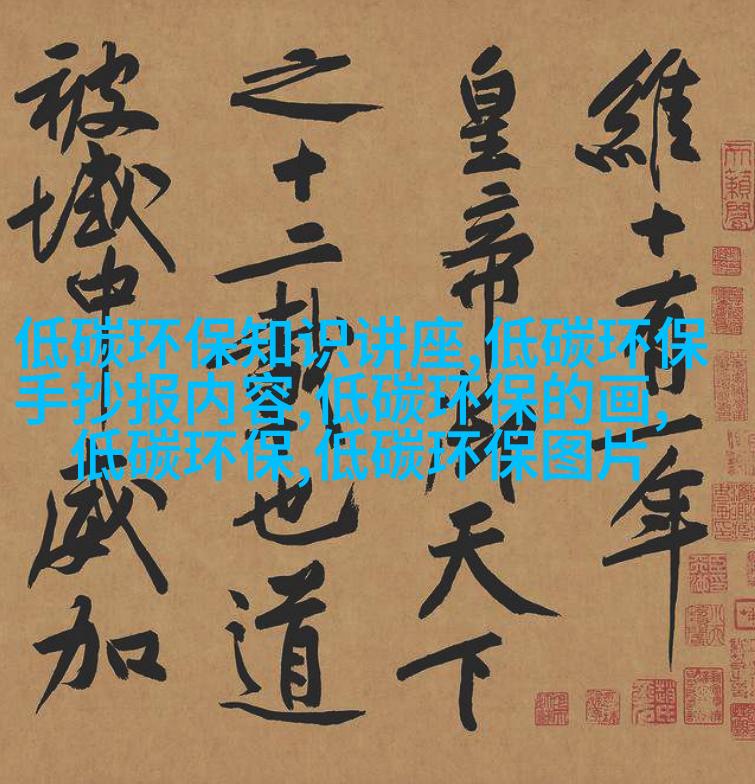 維十有一年
皇帝天下
之十二也道
被域中威加
低碳环保知识讲座,低碳环保
手抄报内容,低碳环保的画,
低碳环保,低碳环保图片
天籟閣